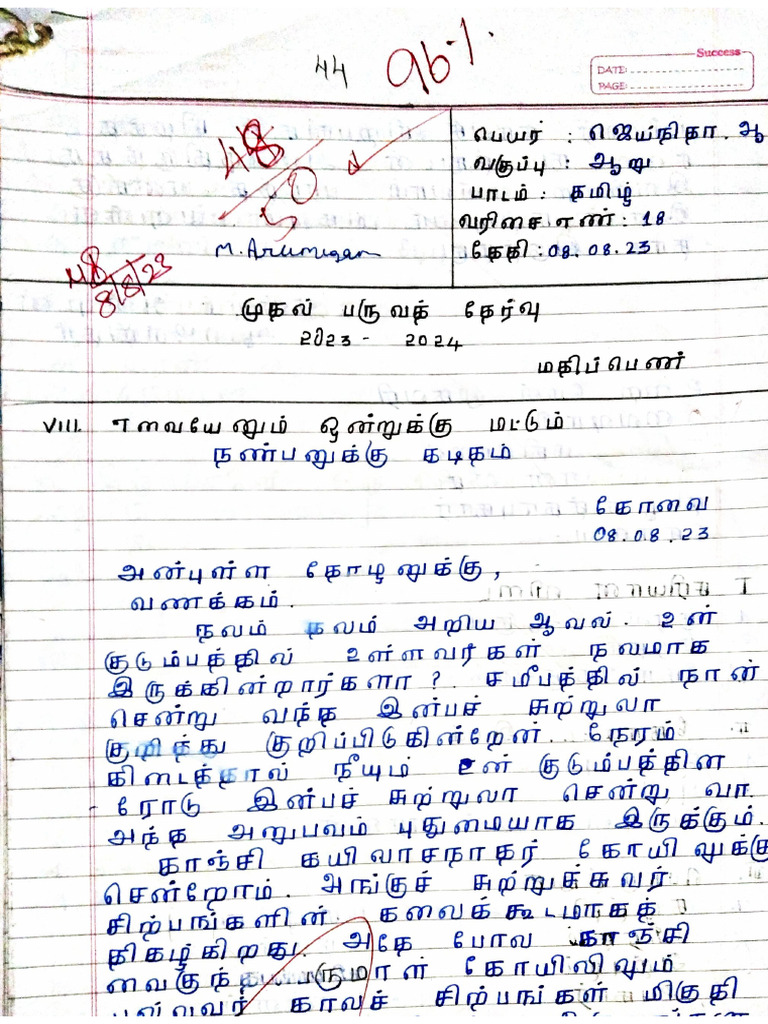 44 96%
Success
DATE:
PAGE:
48
50
M. Arumugam
48
8/8/23
பெயர் : ஜெய்நிதா. ஆ
வகுப்பு : ஆறு
பாடம் : தமிழ்
வரிசை எண் : 18
தேதி : 08.08.23
முதல் பருவத் தேர்வு
2023 - 2024
மதிப்பெண்
VIII. எவையேனும் ஒன்றுக்கு மட்டும்
நண்பனுக்கு கடிதம்
கோவை
08.08.23
அன்புள்ள தோழனுக்கு,
வணக்கம்.
நலம் நலம் அறிய ஆவல். உன்
குடும்பத்தில் உள்ளவர்கள் நலமாக
இருக்கின்றார்களா? சமீபத்தில் நான்
சென்று வந்த இன்பச் சுற்றுலா
குறித்து குறிப்பிடுகின்றேன். நேரம்
கிடைத்தால் நீயும் உன் குடும்பத்தின
ரோடு இன்பச் சுற்றுலா சென்று வா.
அந்த அனுபவம் புதுமையாக இருக்கும்.
காஞ்சி கயிலாசநாதர் கோயிலுக்கு
சென்றோம். அங்குச் சுற்றுச்சுவர்
சிற்பங்களின் கலைக் கூடமாகத்
திகழ்கிறது. அதே போல காஞ்சி
வைகுந்த பெருமாள் கோயிலிலும்
பல்லவர் காலச் சிற்பங்கள் மிகுதி